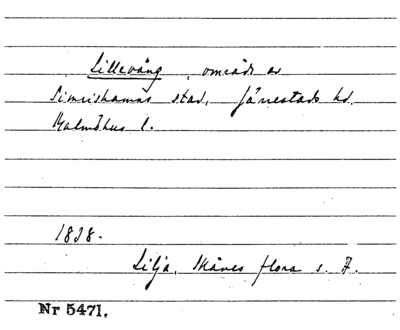 Lillevång, område av
Simrishamns stad, Järrestads hd.
Malmöhus l.
1838.
Lilja, Skånes flora s. 7.
Nr 5471.